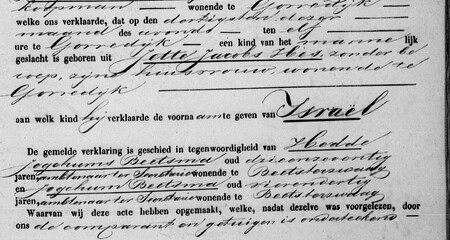 koopman wonende te Gorredijk
welke ons verklaarde, dat op den dertigsten dezer
maand des avonds ten elf
ure te Gorredijk een kind van het manne lijk
geslacht is geboren uit Jette Jacobs Hes, zonder be
roep, zijne huisvrouw, wonende te
Gorredijk
aan welk kind hij verklaarde de voorna am te geven van Israël
De gemelde verklaring is geschied in tegenwoordigheid van Hedde
Jogchums Beetsma oud drieenzeventig
jaren, ambtenaar ter Secretarie wonende te Beetsterzwaag
en Jogchum Beetsma oud vierendertig
jaren, ambtenaar ter Secretarie wonende te Beetsterzwaag
Waarvan wij deze acte hebben opgemaakt, welke, nadat dezelve was voorgelezen, door
ons de comparant en getuigen is onderteekend